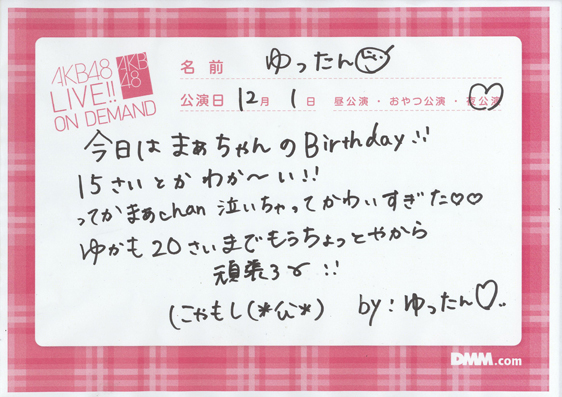 AKB48
LIVE!!
ON DEMAND
AKB
48
名前 ゆったん
公演日 12月 1日 昼公演・おやつ公演・夜公演
今日は まぁちゃん の Birthday!!
15さいとか わか〜い!!
ってか まぁchan 泣いちゃって かわいすぎた♡♡
ゆかも 20さいまで もうちょっと やから
頑張ろ〜!!
にやもし(*^^*) by:ゆったん♡..
DMM.com